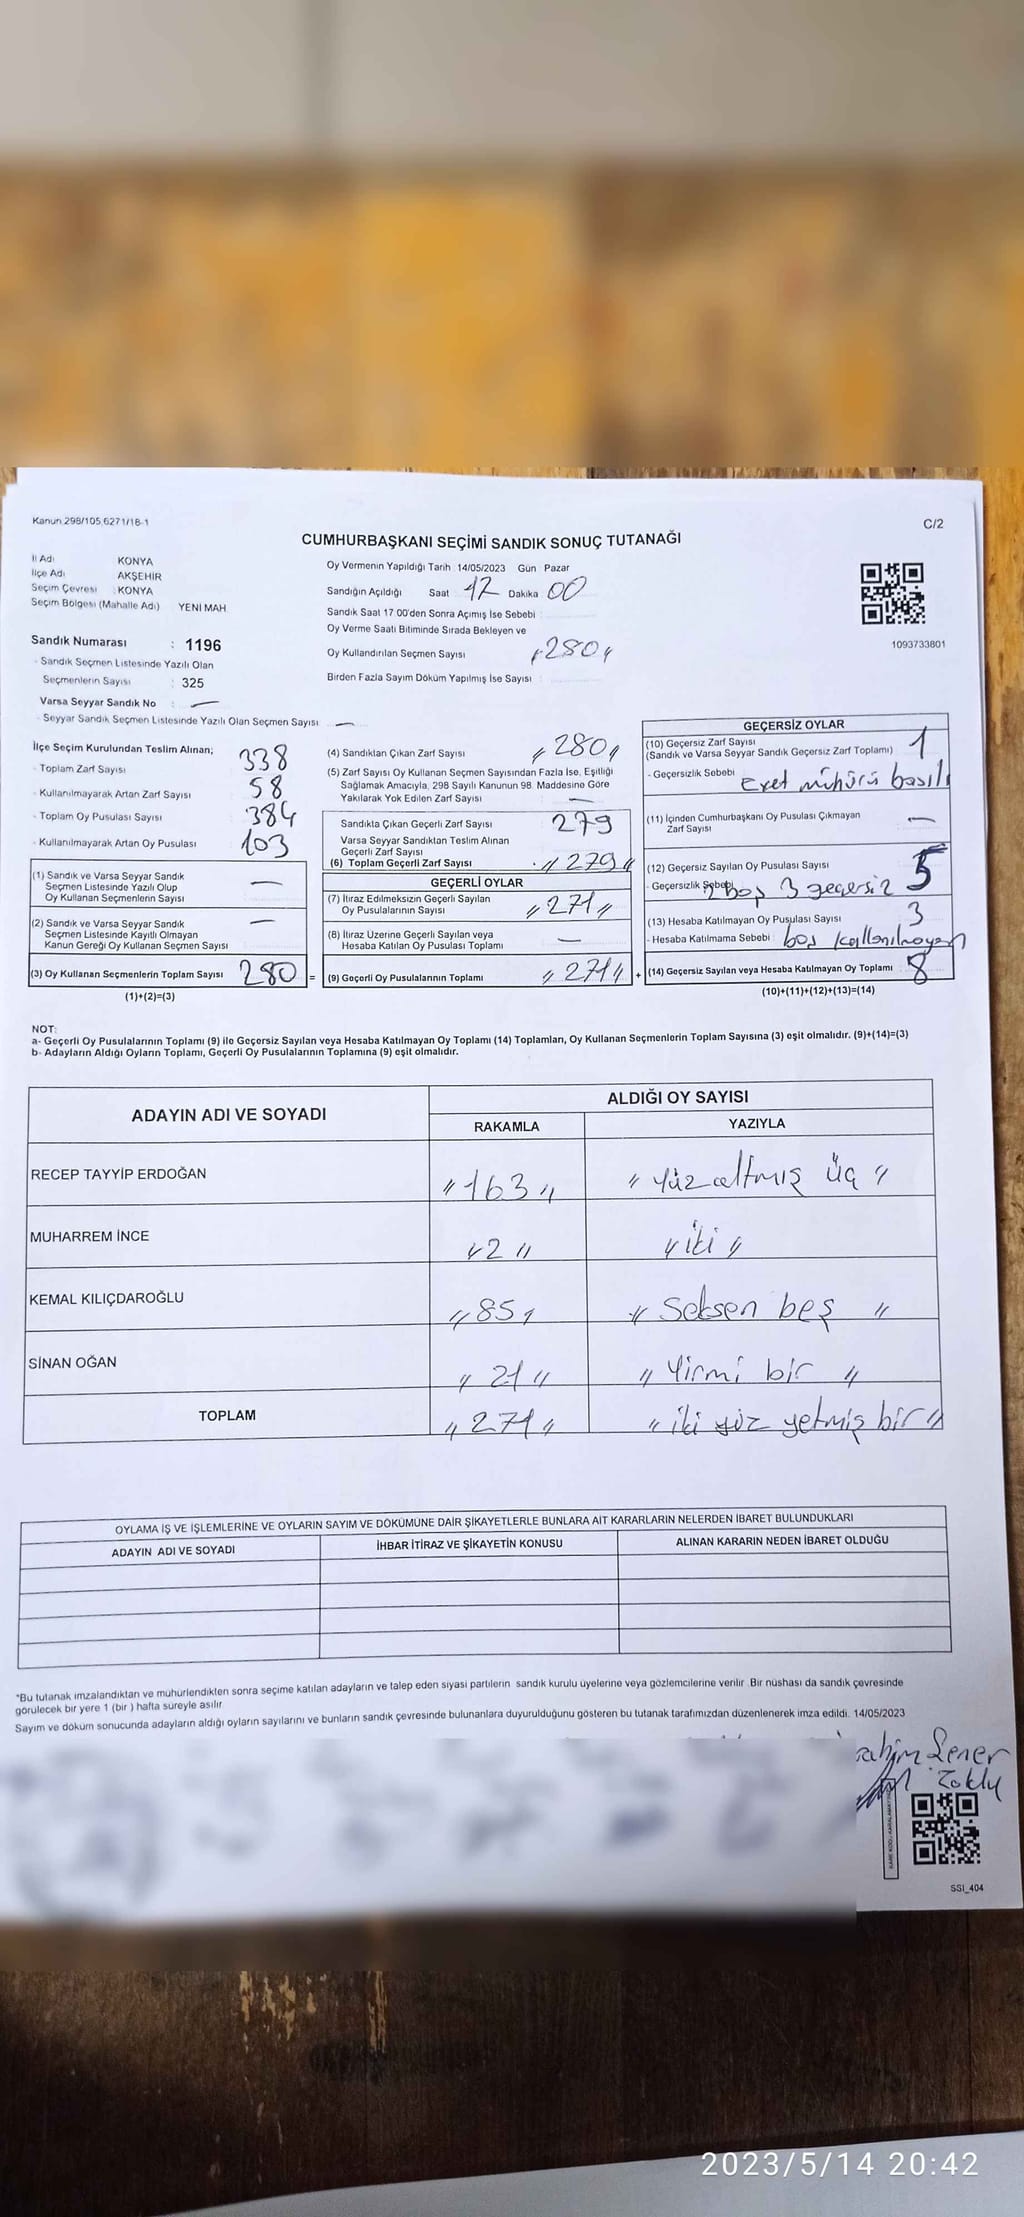 Kanun 298/105,6271/18-1
C/2
CUMHURBAŞKANI SEÇİMİ SANDIK SONUÇ TUTANAĞI
İl Adı KONYA
İlçe Adı AKŞEHİR
Seçim Çevresi : KONYA
Seçim Bölgesi (Mahalle Adı) YENİ MAH
Sandık Numarası : 1196
- Sandık Seçmen Listesinde Yazılı Olan
Seçmenlerin Sayısı : 325
Varsa Seyyar Sandık No : —
- Seyyar Sandık Seçmen Listesinde Yazılı Olan Seçmen Sayısı : —
Oy Vermenin Yapıldığı Tarih 14/05/2023 Gün Pazar
Sandığın Açıldığı Saat 17 Dakika 00
Sandık Saat 17 00'den Sonra Açımış İse Sebebi :
Oy Verme Saati Bitiminde Sırada Bekleyen ve
Oy Kullandırılan Seçmen Sayısı : "280"
Birden Fazla Sayım Döküm Yapılmış İse Sayısı :
1093733801
İlçe Seçim Kurulundan Teslim Alınan;
- Toplam Zarf Sayısı 338
- Kullanılmayarak Artan Zarf Sayısı 58
- Toplam Oy Pusulası Sayısı 384
- Kullanılmayarak Artan Oy Pusulası 103
(1) Sandık ve Varsa Seyyar Sandık
Seçmen Listesinde Yazılı Olup
Oy Kullanan Seçmenlerin Sayısı —
(2) Sandık ve Varsa Seyyar Sandık
Seçmen Listesinde Kayıtlı Olmayan
Kanun Gereği Oy Kullanan Seçmen Sayısı —
(3) Oy Kullanan Seçmenlerin Toplam Sayısı 280 =
(1)+(2)=(3)
(4) Sandıktan Çıkan Zarf Sayısı "280"
(5) Zarf Sayısı Oy Kullanan Seçmen Sayısından Fazla İse, Eşitliği
Sağlamak Amacıyla, 298 Sayılı Kanunun 98. Maddesine Göre
Yakılarak Yok Edilen Zarf Sayısı —
Sandıkta Çıkan Geçerli Zarf Sayısı 279
Varsa Seyyar Sandıktan Teslim Alınan
Geçerli Zarf Sayısı
(6) Toplam Geçerli Zarf Sayısı "279"
GEÇERLİ OYLAR
(7) İtiraz Edilmeksizin Geçerli Sayılan
Oy Pusulalarının Sayısı "271"
(8) İtiraz Üzerine Geçerli Sayılan veya
Hesaba Katılan Oy Pusulası Toplamı —
(9) Geçerli Oy Pusulalarının Toplamı "271" +
GEÇERSİZ OYLAR
(10) Geçersiz Zarf Sayısı
(Sandık ve Varsa Seyyar Sandık Geçersiz Zarf Toplamı) 1
- Geçersizlik Sebebi Evet mühürü basılı
(11) İçinden Cumhurbaşkanı Oy Pusulası Çıkmayan
Zarf Sayısı —
(12) Geçersiz Sayılan Oy Pusulası Sayısı 5
- Geçersizlik Sebebi 2 boş 3 geçersiz
(13) Hesaba Katılmayan Oy Pusulası Sayısı 3
- Hesaba Katılmama Sebebi : boş kullanılmayan
(14) Geçersiz Sayılan veya Hesaba Katılmayan Oy Toplamı 8
(10)+(11)+(12)+(13)=(14)
NOT:
a- Geçerli Oy Pusulalarının Toplamı (9) ile Geçersiz Sayılan veya Hesaba Katılmayan Oy Toplamı (14) Toplamları, Oy Kullanan Seçmenlerin Toplam Sayısına (3) eşit olmalıdır. (9)+(14)=(3)
b- Adayların Aldığı Oyların Toplamı, Geçerli Oy Pusulalarının Toplamına (9) eşit olmalıdır.
ADAYIN ADI VE SOYADI
ALDIĞI OY SAYISI
RAKAMLA YAZIYLA
RECEP TAYYİP ERDOĞAN "163" "Yüz altmış üç"
MUHARREM İNCE "2" "iki"
KEMAL KILIÇDAROĞLU "85" "Seksen beş"
SİNAN OĞAN "21" "Yirmi bir"
TOPLAM "271" "iki yüz yetmiş bir"
OYLAMA İŞ VE İŞLEMLERİNE VE OYLARIN SAYIM VE DÖKÜMÜNE DAİR ŞİKAYETLERLE BUNLARA AİT KARARLARIN NELERDEN İBARET BULUNDUKLARI
ADAYIN ADI VE SOYADI İHBAR İTİRAZ VE ŞİKAYETİN KONUSU ALINAN KARARIN NEDEN İBARET OLDUĞU
*Bu tutanak imzalandıktan ve mühürlendikten sonra seçime katılan adayların ve talep eden siyasi partilerin sandık kurulu üyelerine veya gözlemcilerine verilir .Bir nüshası da sandık çevresinde
görülecek bir yere 1 (bir ) hafta süreyle asılır
Sayım ve döküm sonucunda adayların aldığı oyların sayılarını ve bunların sandık çevresinde bulunanlara duyurulduğunu gösteren bu tutanak tarafımızdan düzenlenerek imza edildi. 14/05/2023
rahim Şener
SSI_404
2023/5/14 20:42